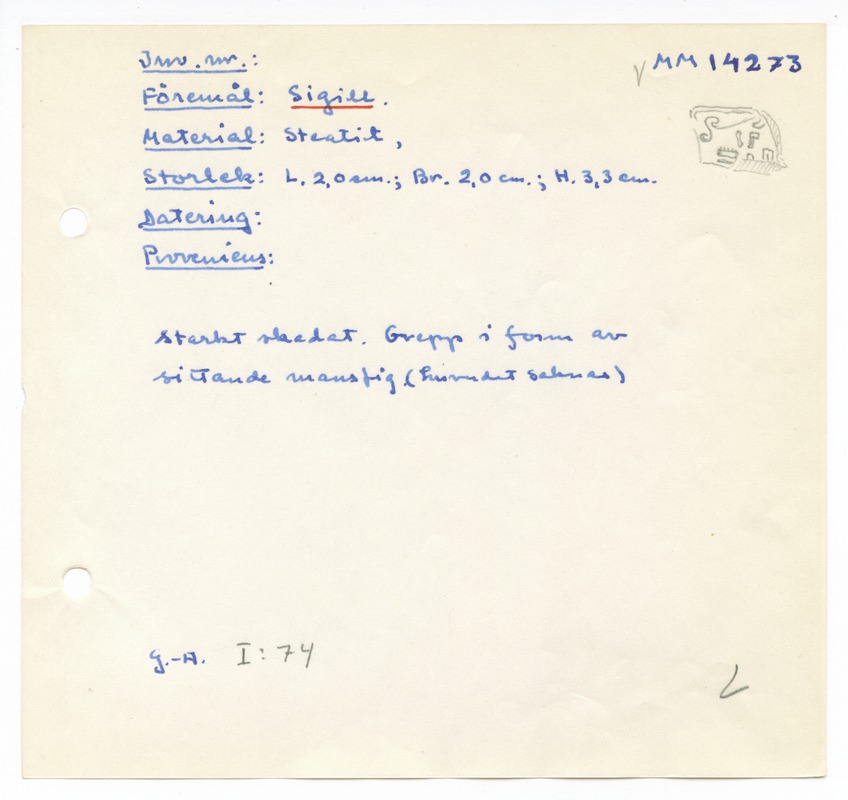 Inv. nr.: MM 14273
Föremål: Sigill.
Material: Steatit,
Storlek: L. 2,0 cm.; Br. 2,0 cm.; H. 3,3 cm.
Datering:
Proveniens:
Starkt skadat. Grepp i form av
sittande mansfig (huvudet saknas)
G.-H. I:74